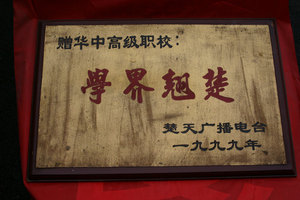 赠华中高级职校：
學界翘楚
楚天广播电台
一九九九年